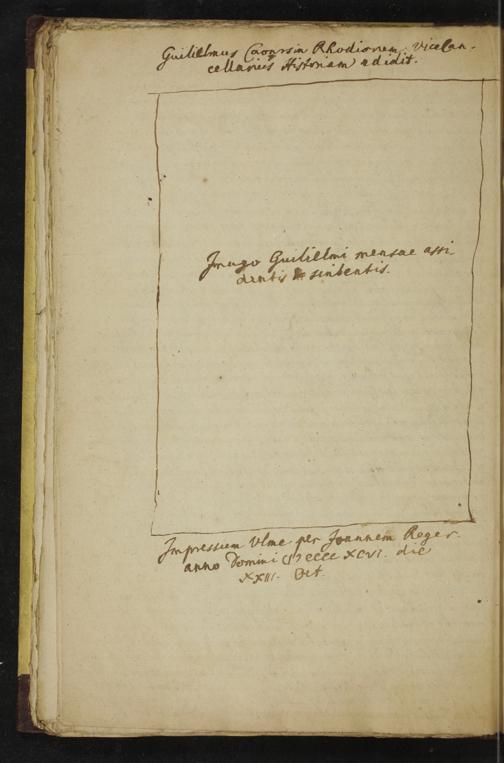 Guilielmus Caoursin Rhodiorum Vicecan-
cellarius Historiam adidit.
Imago Guilielmi mensae assi
dentis & scribentis.
Impressum Vlme per Joannem Reger.
anno Domini MCCCCXCVI. die
XXIII. Oct.